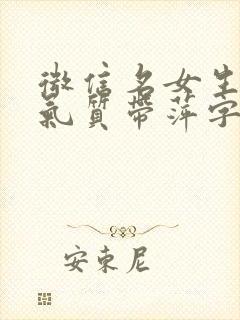 微信名女生
氣質帶萍字
安東尼